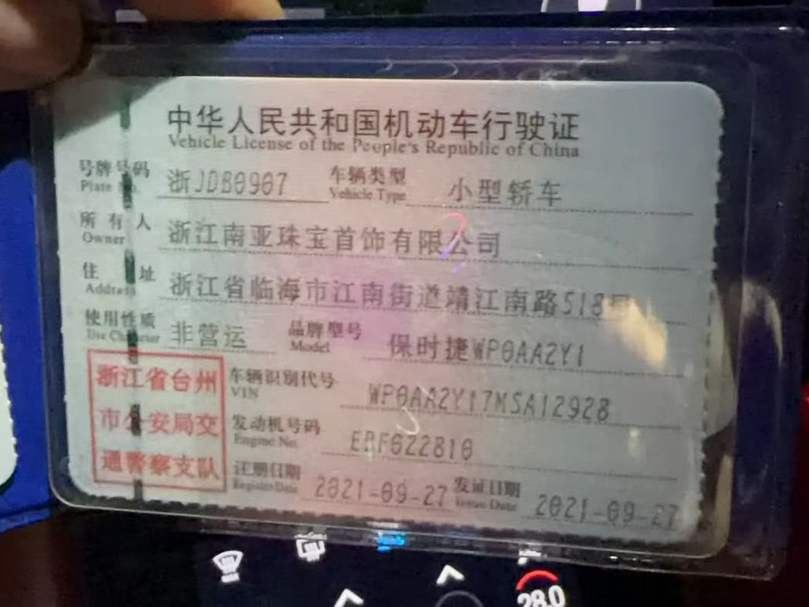 中华人民共和国机动车行驶证
Vehicle License of the People's Republic of China
号牌号码 浙JDB0907 车辆类型 小型轿车
Plate No. Vehicle Type
所有人 浙江南亚珠宝首饰有限公司
Owner
住址 浙江省临海市江南街道靖江南路518号
Address
使用性质 非营运 品牌型号 保时捷WP0AA2Y1
Use Character Model
浙江省台州 车辆识别代号 WP0AA2Y17MSA12928
VIN
市公安局交 发动机号码 EBF022810
Engine No.
通警察支队 注册日期 2021-09-27 发证日期 2021-09-27
Register Date Issue Date
28.0